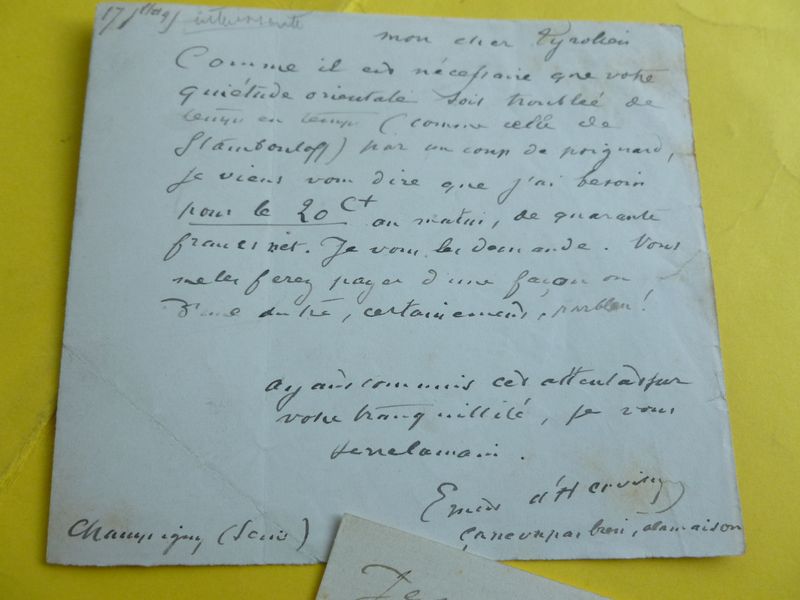 17 Juillet 95 interessante
mon cher Tyrolien
Comme il est nécessaire que votre
quiétude orientale soit troublée de
temps en temps (comme celle de
Stambouloff) par un coup de poignard,
je viens vous dire que j'ai besoin
pour le 20 Ct au matin, de quarante
francs net. Je vous les demande. Vous
me les ferez payer d'une façon ou
d'une autre, certainement, parbleu!
ayant commis cet attentat sur
votre tranquillité, je vous
serre la main.
Ernest d'Hervilly
Ça ne va pas bien, à la maison
Champigny (Seine)
Je